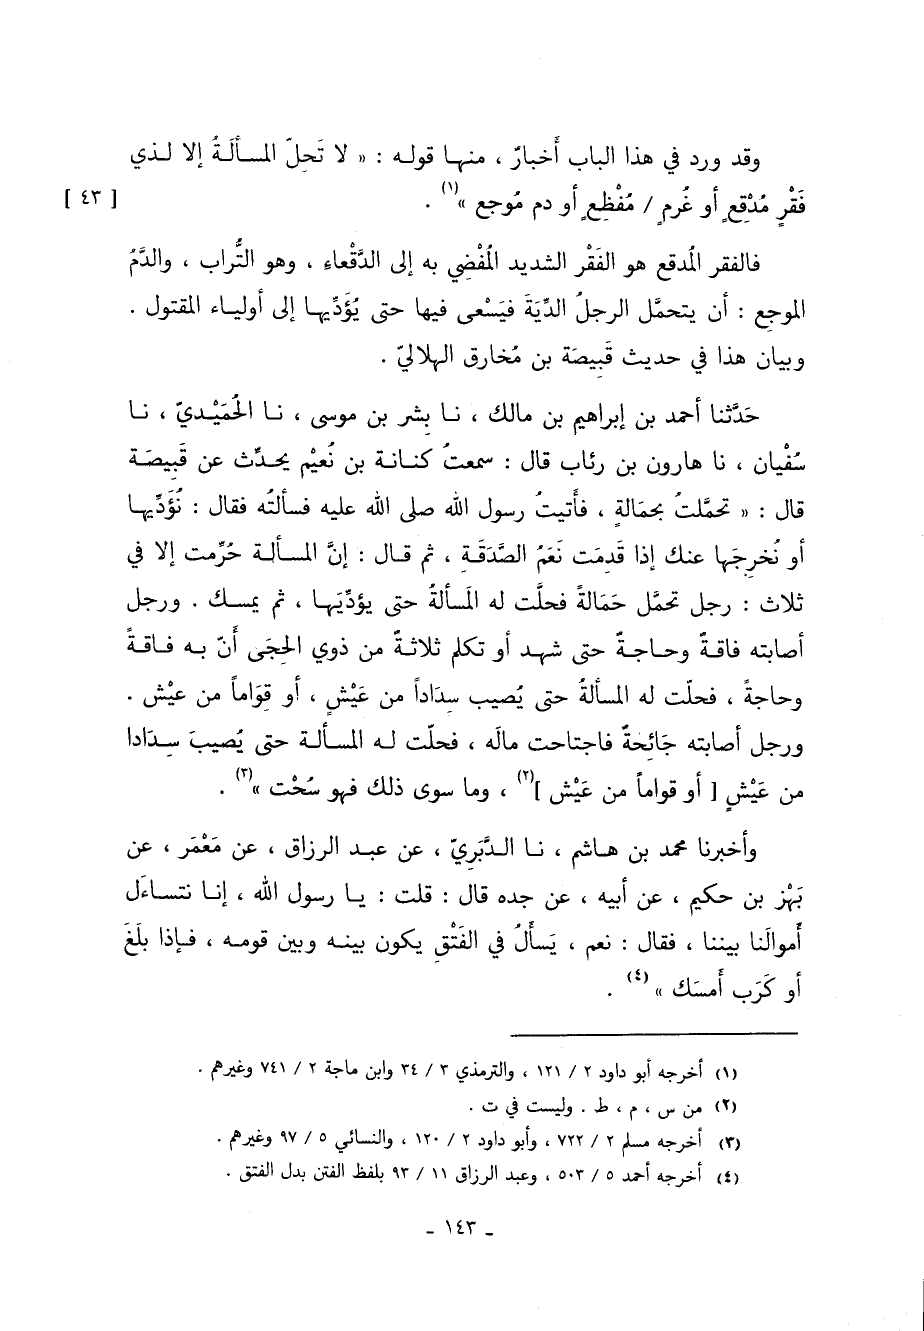 وقد ورد في هذا الباب أَخبارٌ ، منهـا قولـه : « لا تَحِلّ المسـألَـةُ إلا لـذي
فَقْرٍ مُدْقِعٍ أو غُرمٍ / مُفْظِعٍ أو دم مُوجع »(١) . [ ٤٣ ]
فالفقر المُدقع هو الفَقْر الشديد المُفْضِي به إلى الدَّقْعاء ، وهو التُّراب ، والدَّمُ
الموجِع : أن يتحمَّل الرجلُ الدِّيَةَ فيَسْعى فيها حتى يُؤَدِّيهـا إلى أوليـاء المقتول .
وبيان هذا في حديث قَبِيصَة بن مُخارق الهلاليّ .
حَدَّثنا أحمد بن إبراهيم بن مالك ، نـا بِشر بن موسى ، نـا الحُمَيْـديّ ، نـا
سُفْيان ، نا هارون بن رئاب قال : سمعتُ كنـانـة بن نُعيْم يحدِّث عن قَبِيصَـة
قال : « تحمَّلتُ بحَمالةٍ ، فأَتيتُ رسول الله صلى الله عليه فسـألتُه فقال : نُؤَدِّيهـا
أو نُخرجَها عنك إذا قَدِمَت نَعَمُ الصَّدَقَـةِ ، ثم قـال : إنَّ المسـألـة حُرِّمت إلا في
ثلاث : رجل تحمَّل حَمَالةً فحلَّت له المَسألةُ حتى يؤدِّيَهـا ، ثم يمسـك . ورجل
أصابته فاقـةٌ وحـاجـةٌ حتى شهـد أو تكلم ثلاثـةٌ من ذوي الحِجَى أَنّ بـه فـاقـةً
وحاجةً ، فحلّت له المسألةُ حتى يُصيب سِدَاداً من عَيْشٍ ، أو قِوَاماً من عيْش .
ورجل أصابته جَائِحةٌ فاجتاحت مالَه ، فحلّت لـه المسـالـة حتى يُصِيبَ سِـدَادا
من عَيْشٍ [ أو قواماً من عَيْش ](٢) ، وما سوى ذلك فهو سُحْت »(٣) .
وأخبرنا محمد بن هـاشم ، نـا الـدَّبَرِيّ ، عن عبـد الرزاق ، عن مَعْمَر ، عن
بَهْز بن حكيم ، عن أبيه ، عن جده قال : قلت : يـا رسول الله ، إنـا نتسـاءَل
أَموالَنا بيننا ، فقال : نعم ، يَسأَلُ في الفَتْقِ يكون بينـه وبين قومـه ، فـإذا بلَغَ
أو كَرَب أَمسَك »(٤) .
(١) أخرجه أبو داود ٢ / ١٢١ ، والترمذي ٣ / ٣٤ وابن ماجة ٢ / ٧٤١ وغيرهم .
(٢) من س ، م ، ط . وليست في ت .
(٣) أخرجه مسلم ٢ / ٧٢٢ ، وأبو داود ٢ / ١٢٠ ، والنسائي ٥ / ٩٧ وغيرهم .
(٤) أخرجه أحمد ٥ / ٥٠٣ ، وعبد الرزاق ١١ / ٩٣ بلفظ الفتن بدل الفتق .
ـ ١٤٣ ـ